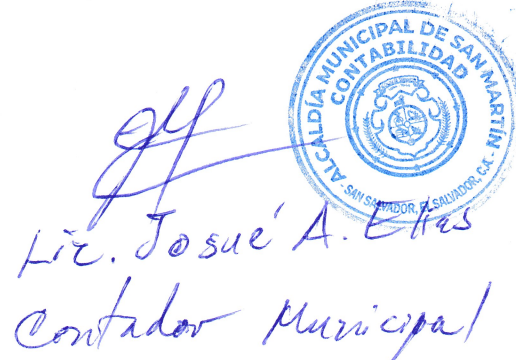 ALCALDÍA MUNICIPAL DE SAN MARTÍN
CONTABILIDAD
SAN SALVADOR, EL SALVADOR, C.A.
Lic. Josué A. Elias
Contador Municipal